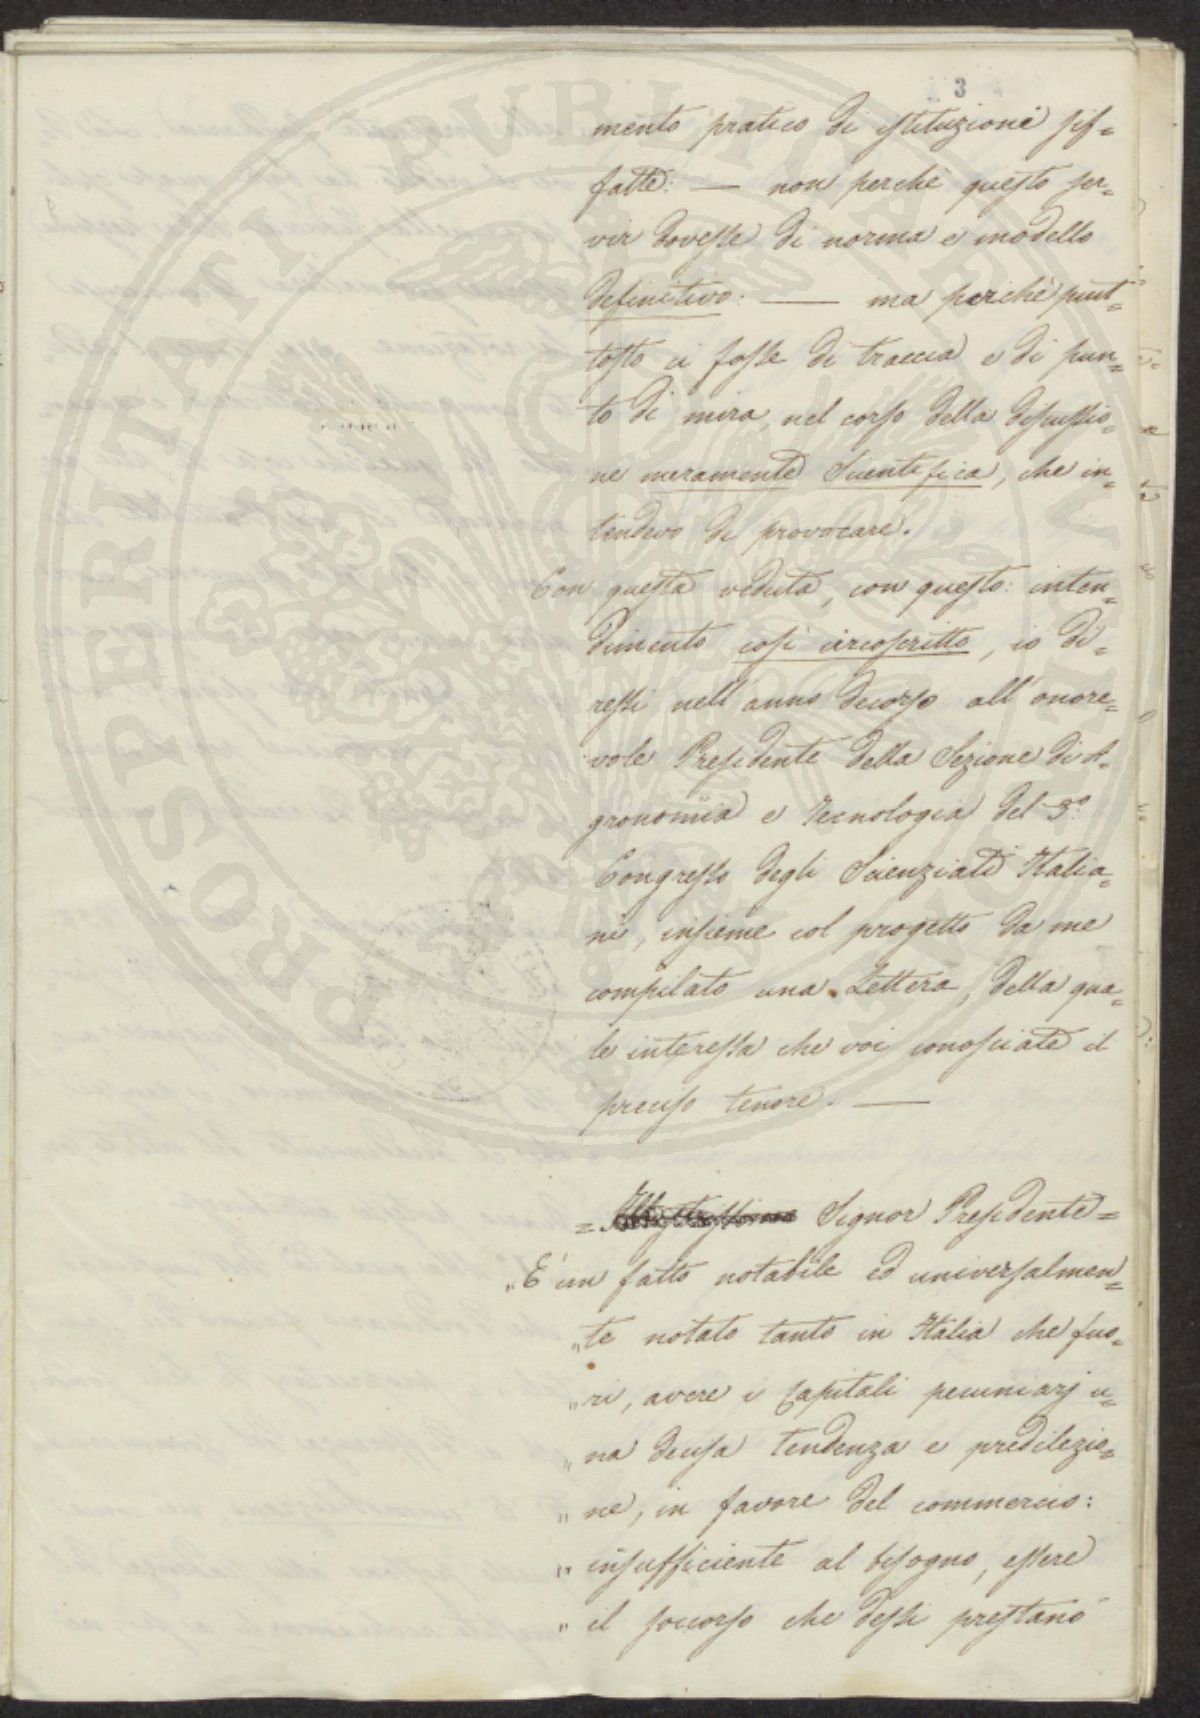 3
mento pratico di istituzioni sif=
fatte: — non perchè questo ser=
vir dovesse di norma e modello
definitivo: — ma perchè piut=
tosto ci fosse di traccia e di pun=
to di mira, nel corso della discussio=
ne meramente scientifica, che in=
tendevo di provocare.
Con questa veduta, con questo intendi=
dimento così circoscritto, io di=
ressi nell'anno decorso all'onore=
vole Presidente della Sezione di A=
gronomia e Tecnologia del 3°
Congresso degli Scienziati Italia=
ni, insieme col progetto da me
compilato una Lettera, della qua=
le interessa che voi conosciate il
preciso tenore. —
= Signor Presidente =
„ È un fatto notabile ed universalmen=
„ te notato tanto in Italia che fuo=
„ ri, avere i Capitali pecuniarj u=
„ na decisa tendenza e predilezio=
„ ne, in favore del commercio:
„ insufficiente al bisogno, essere
„ il soccorso che dessi prestano
PROSPERITATI PUBLICAE AUGENDAE